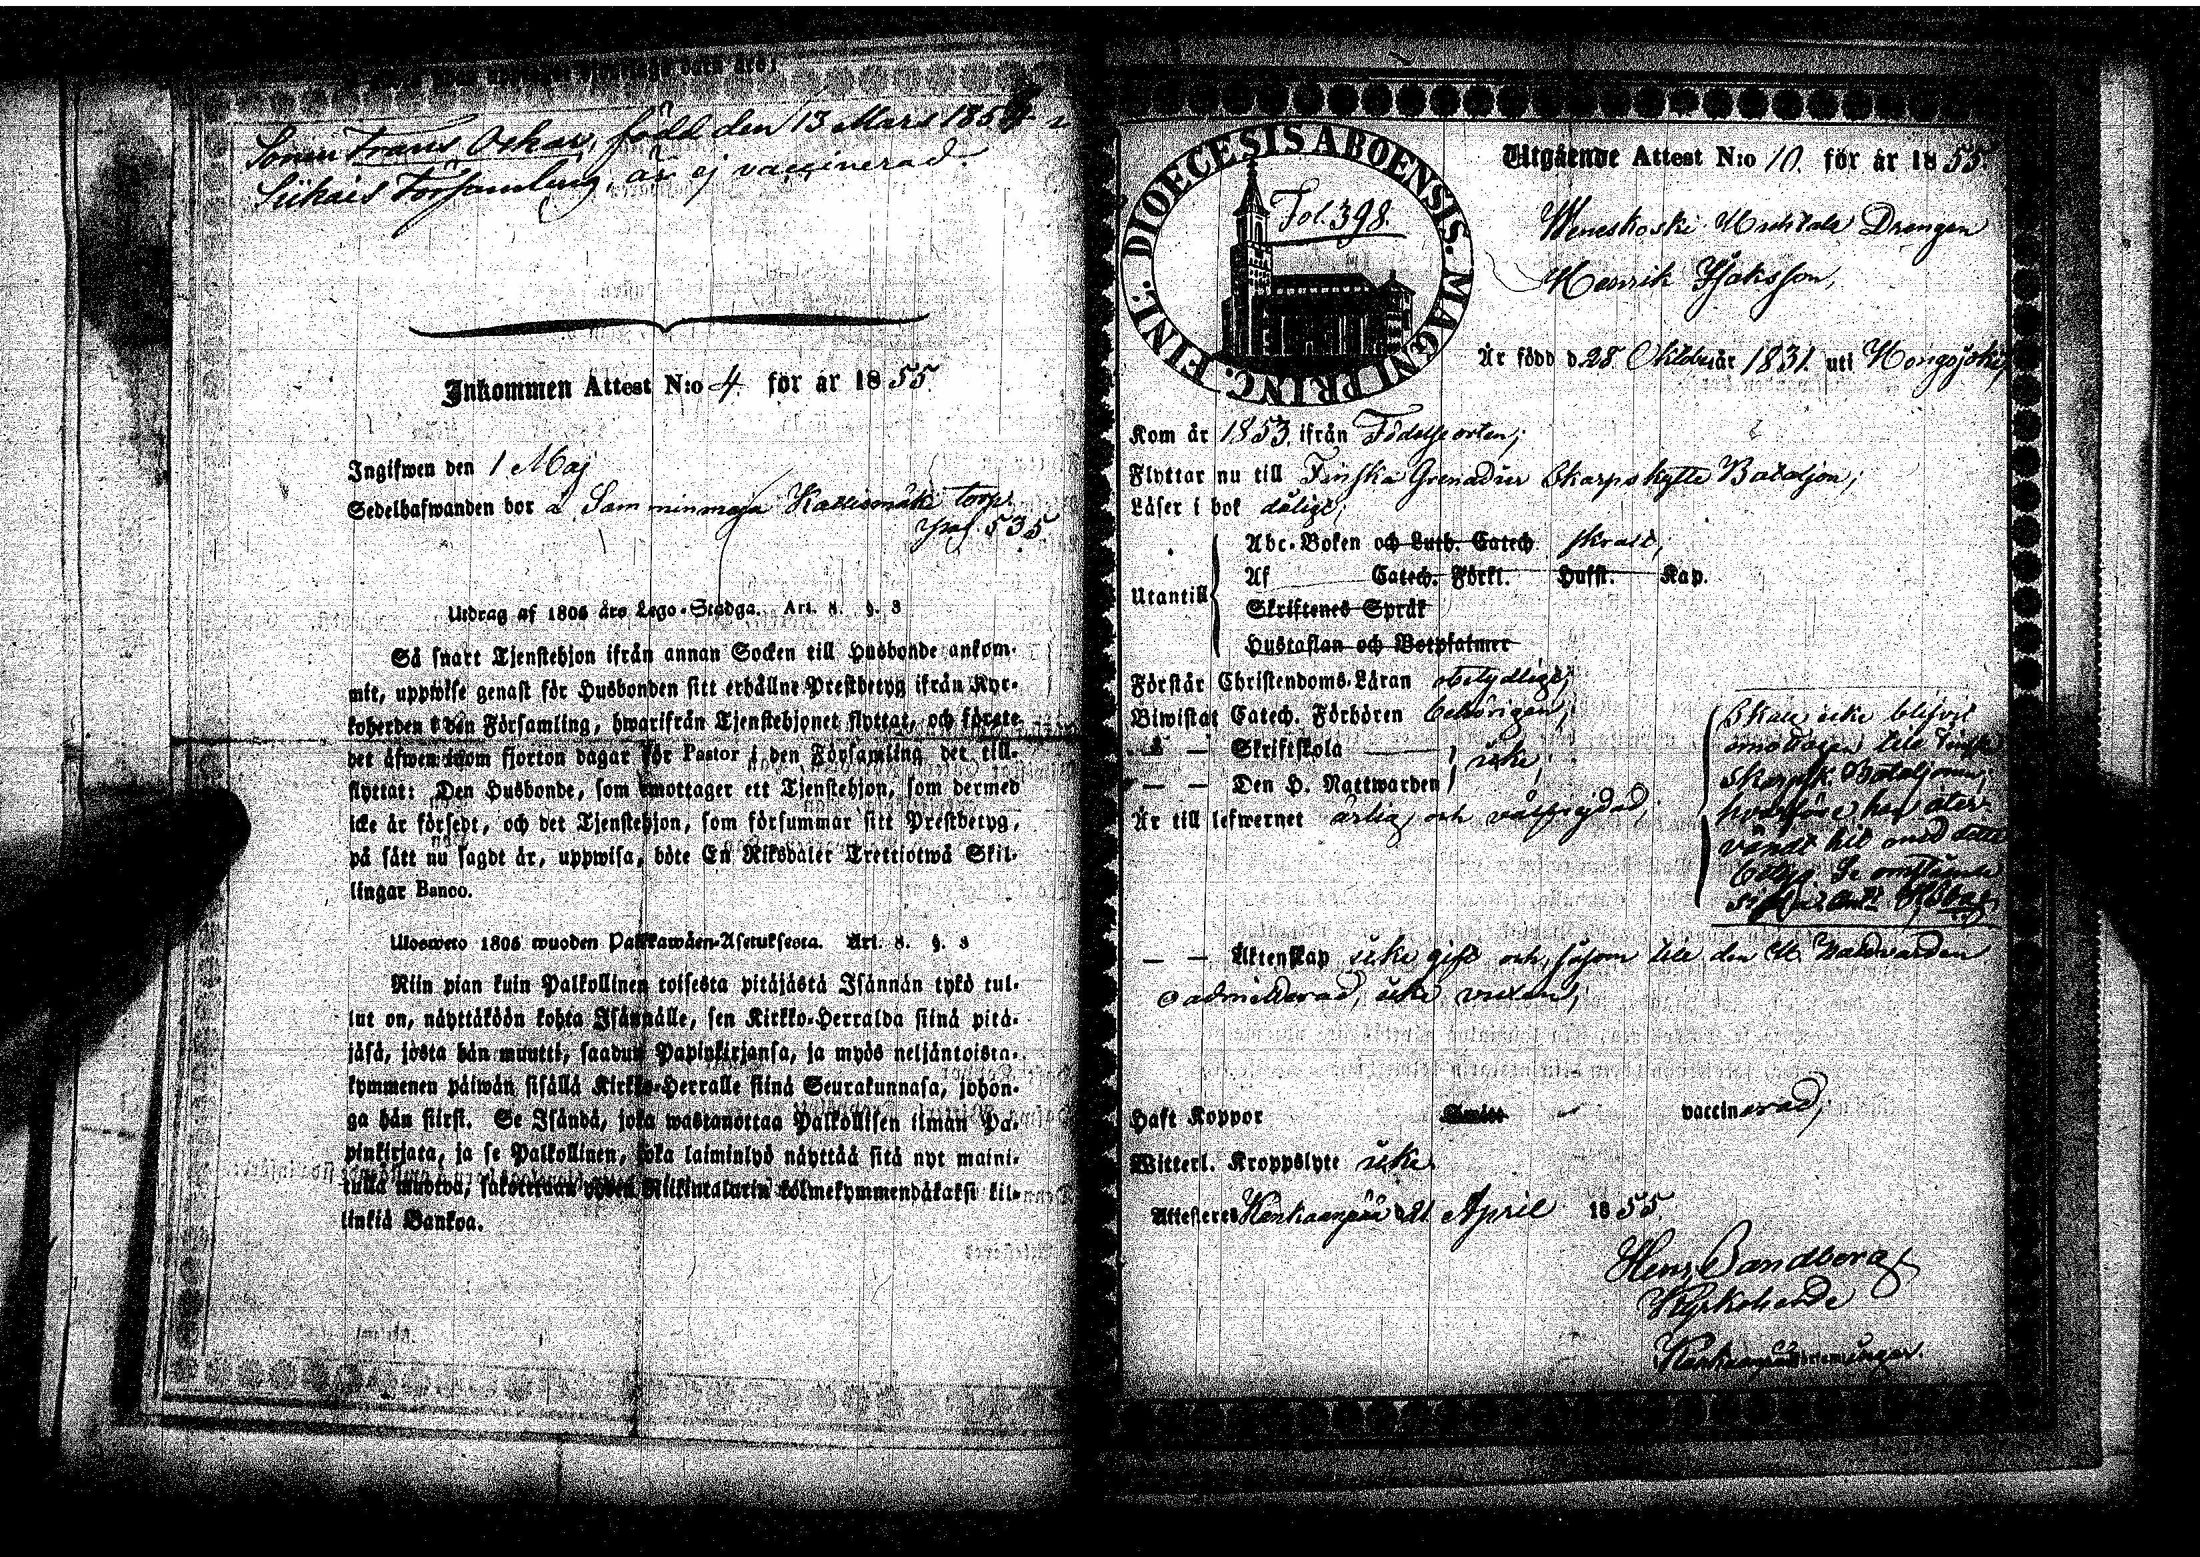 Sonen Frans Oskar, född den 13 Mars 1854 i
Siikais Församling, är ej vaccinerad.
Inkommen Attest N:o 4 för år 1855.
Ingifwen den 1 Maj
Sedelhafwanden bor å Samminmaja torp
pag. 535
Utdrag af 1805 års Lego-Stadga. Art. 8. §. 3
Så snart Tjenstehjon ifrån annan Socken till Husbonde ankom-
mit, uppwise genast för Husbonden sitt erhållne Prestbetyg ifrån Kyr-
koherden i den Församling, hwarifrån Tjenstehjonet flyttat, och förete
det äfwen inom fjorton dagar för Pastor i den Församling det till-
flyttat: Den Husbonde, som emottager ett Tjenstehjon, som dermed
icke är försedt, och det Tjenstehjon, som försummar sitt Prestbetyg,
på sätt nu sagdt är, uppwisa, böte En Riksdaler Trettiotwå Skil-
lingar Banco.
Ulosweto 1805 wuoden Palkkawäen-Asetuksesta. Art. 8. §. 3
Niin pian kuin Palkollinen toisesta pitäjästä Isännän tykö tul-
lut on, näyttäköön kohta Isännälle, sen Kirkko-Herralda siinä pitä-
jäsä, josta hän muutti, saadun Papinkirjansa, ja myös neljäntoista-
kymmenen päiwän sisällä Kirkko-Herralle siinä Seurakunnasa, johon-
ga hän siirst. Se Isändä, joka wastanottaa Palkollisen ilman Pa-
pinkirjata, ja se Palkollinen, joka laiminlyö näyttää sitä nyt maini-
tulla muotoa, sakotetaan yhden Riikintalarin kolmekymmendäkaksi kil-
linkiä Bankoa.
DIOECESIS ABOENSIS. MAGNI PRINC. FINL.
Fol. 398.
Utgående Attest N:o 10. för år 1855.
Weneskoski Drengen
Henrik Isaksson,
Är född d. 28 Oktober år 1831. uti Hongojoki,
Kom år 1853. ifrån Födelseorten;
Flyttar nu till Finska Grenadier Skarpskytte Bataljon;
Läser i bok dåligt;
Utantill
Abc-Boken och Luth. Catech svalt;
Af Catech. Förkl. Husst. Kap.
Skriftenes Språk
Hustaflan och Botpsalmer
Förstår Christendoms-Läran obetydligt;
Biwistat Catech. Förhören behörigen;
— — Skriftskola
— — Den H. Nattwarden icke;
Är till lefwernet ärlig och välfrejdad;
Skall icke blifvit
emottagen till Finska
Skarpsk. Bataljonen;
hvarföre han åter-
vändt hit med detta
betyg
— — Äktenskap icke gift och, såsom till den H. Nattvarden
oadmitterad, icke vuxen;
Haft Koppor vaccinerad;
Witterl. Kroppslyte icke.
Attesteres Kankaanpää d. 21 April 1855.
Henr. Sandborg
Kyrkoherde
Kankaanpää Församlingar.